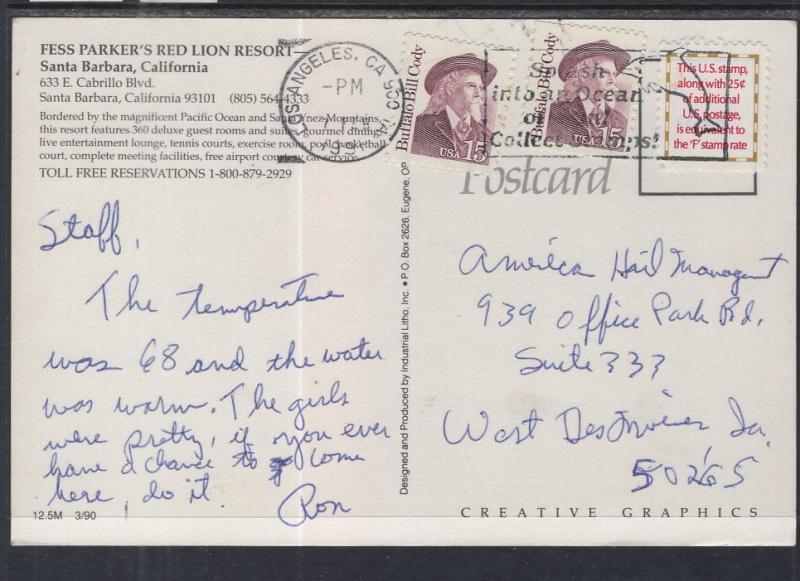 FESS PARKER'S RED LION RESORT—
Santa Barbara, California
633 E. Cabrillo Blvd.
Santa Barbara, California 93101 (805) 564-4333
Bordered by the magnificent Pacific Ocean and Santa Ynez Mountains,
this resort features 360 deluxe guest rooms and suites, gourmet dining,
live entertainment lounge, tennis courts, exercise room, pool, basketball
court, complete meeting facilities, free airport courtesy car service.
TOLL FREE RESERVATIONS 1-800-879-2929
LOS ANGELES, CA 900
-PM
1991
Buffalo Bill Cody
USA 15
Buffalo Bill Cody
USA 15
Splash
into an Ocean
of Fun!
Collect Stamps!
This U.S. stamp,
along with 25¢
of additional
U.S. postage,
is equivalent to
the 'F' stamp rate
Postcard
Staff,
The temperature
was 68 and the water
was warm. The girls
were pretty, if you ever
have a chance to come
here, do it.
Ron
12.5M 3/90
Designed and Produced by Industrial Litho, Inc. • P.O. Box 2626, Eugene, OP
America Hail Managent
939 Office Park Rd.
Suite 333
West Des Moines, Ia.
50265
CREATIVE GRAPHICS